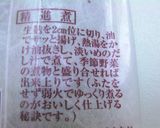 精進煮
生麩を2cm位に切り、油
でサッと揚げ、熱湯をか
け油抜きし、淡いめのだ
し汁で煮て、季節野菜
の煮物と盛り合せれば
出来上りです(ふたを
せず弱火でゆっくり煮るの
がおいしく仕上げる
秘訣です。)